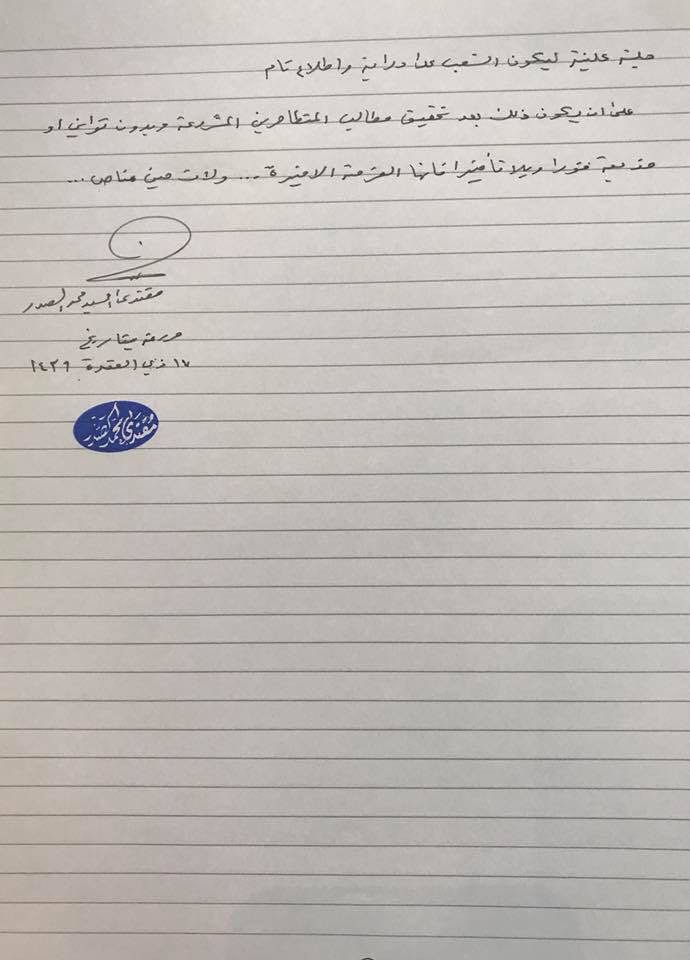 جلية علنية ليكون الشعب على دراية واطلاع تام
على ان يكون ذلك بعد تحقيق مطالب المتظاهرين المشروعة وبدون تواني او
خديعة فورا وبلا تأخير فانها الفرصة الاخيرة... ولات حين مناص...
مقتدى السيد محمد الصدر
حرره بتاريخ
١٧ ذي القعدة ١٤٣٩
مقتدى محمد الصدر